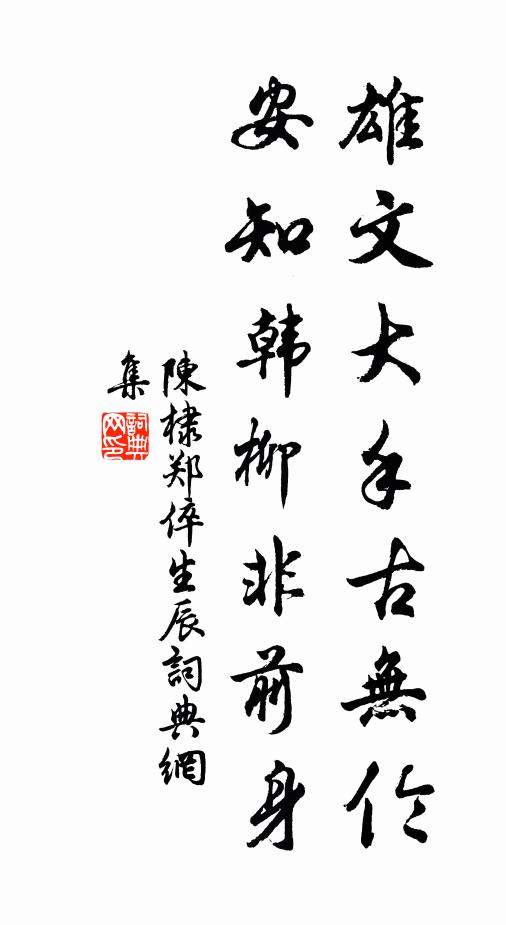 雄文大手古無伦
安知韩柳非前身
陳棣郑倅生辰詞典網
集
詞典网印